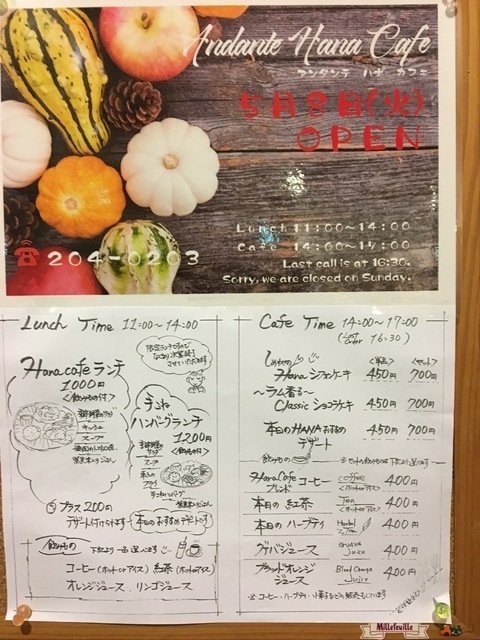 Andante Hana Cafe
アンダンテ ハナ カフェ
5月8日(火)
OPEN
Lunch 11:00~14:00
Cafe 14:00~17:00
Last call is at 16:30.
Sorry, we are closed on Sunday.
☎204-0203
Lunch Time 11:00~14:00
Hana cafe ランチ
1000円
<飲みもの付>
キッシュ
スープ
手ごね
ハンバーグランチ
1200円
<飲みもの付>
スープ
プラス200円
デザート付けられます
本日のおすすめデザートです
飲みもの 下記より一品選べます
コーヒー(ホットorアイス) 紅茶(ホットorアイス)
オレンジジュース リンゴジュース
Cafe Time 14:00~17:00
(Last order 16:30)
<単品> <セット>
Hana シフォンケーキ 450円 700円
~ラム香る~
Classic ショコラケーキ 450円 700円
本日のHANAおすすめ
デザート 450円 700円
飲みもの
Hana Cafe
ブレンド コーヒー coffee <ホットorアイス> 400円
本日の 紅茶 Tea <ホットorアイス> 400円
本日の ハーブティ Herbal Tea 400円
グァバジュース Guava juice 400円
ブラッドオレンジ
ジュース Blood Orange Juice 400円
※コーヒー・ハーブティ・小菓子などの販売もしています
Millefeuille